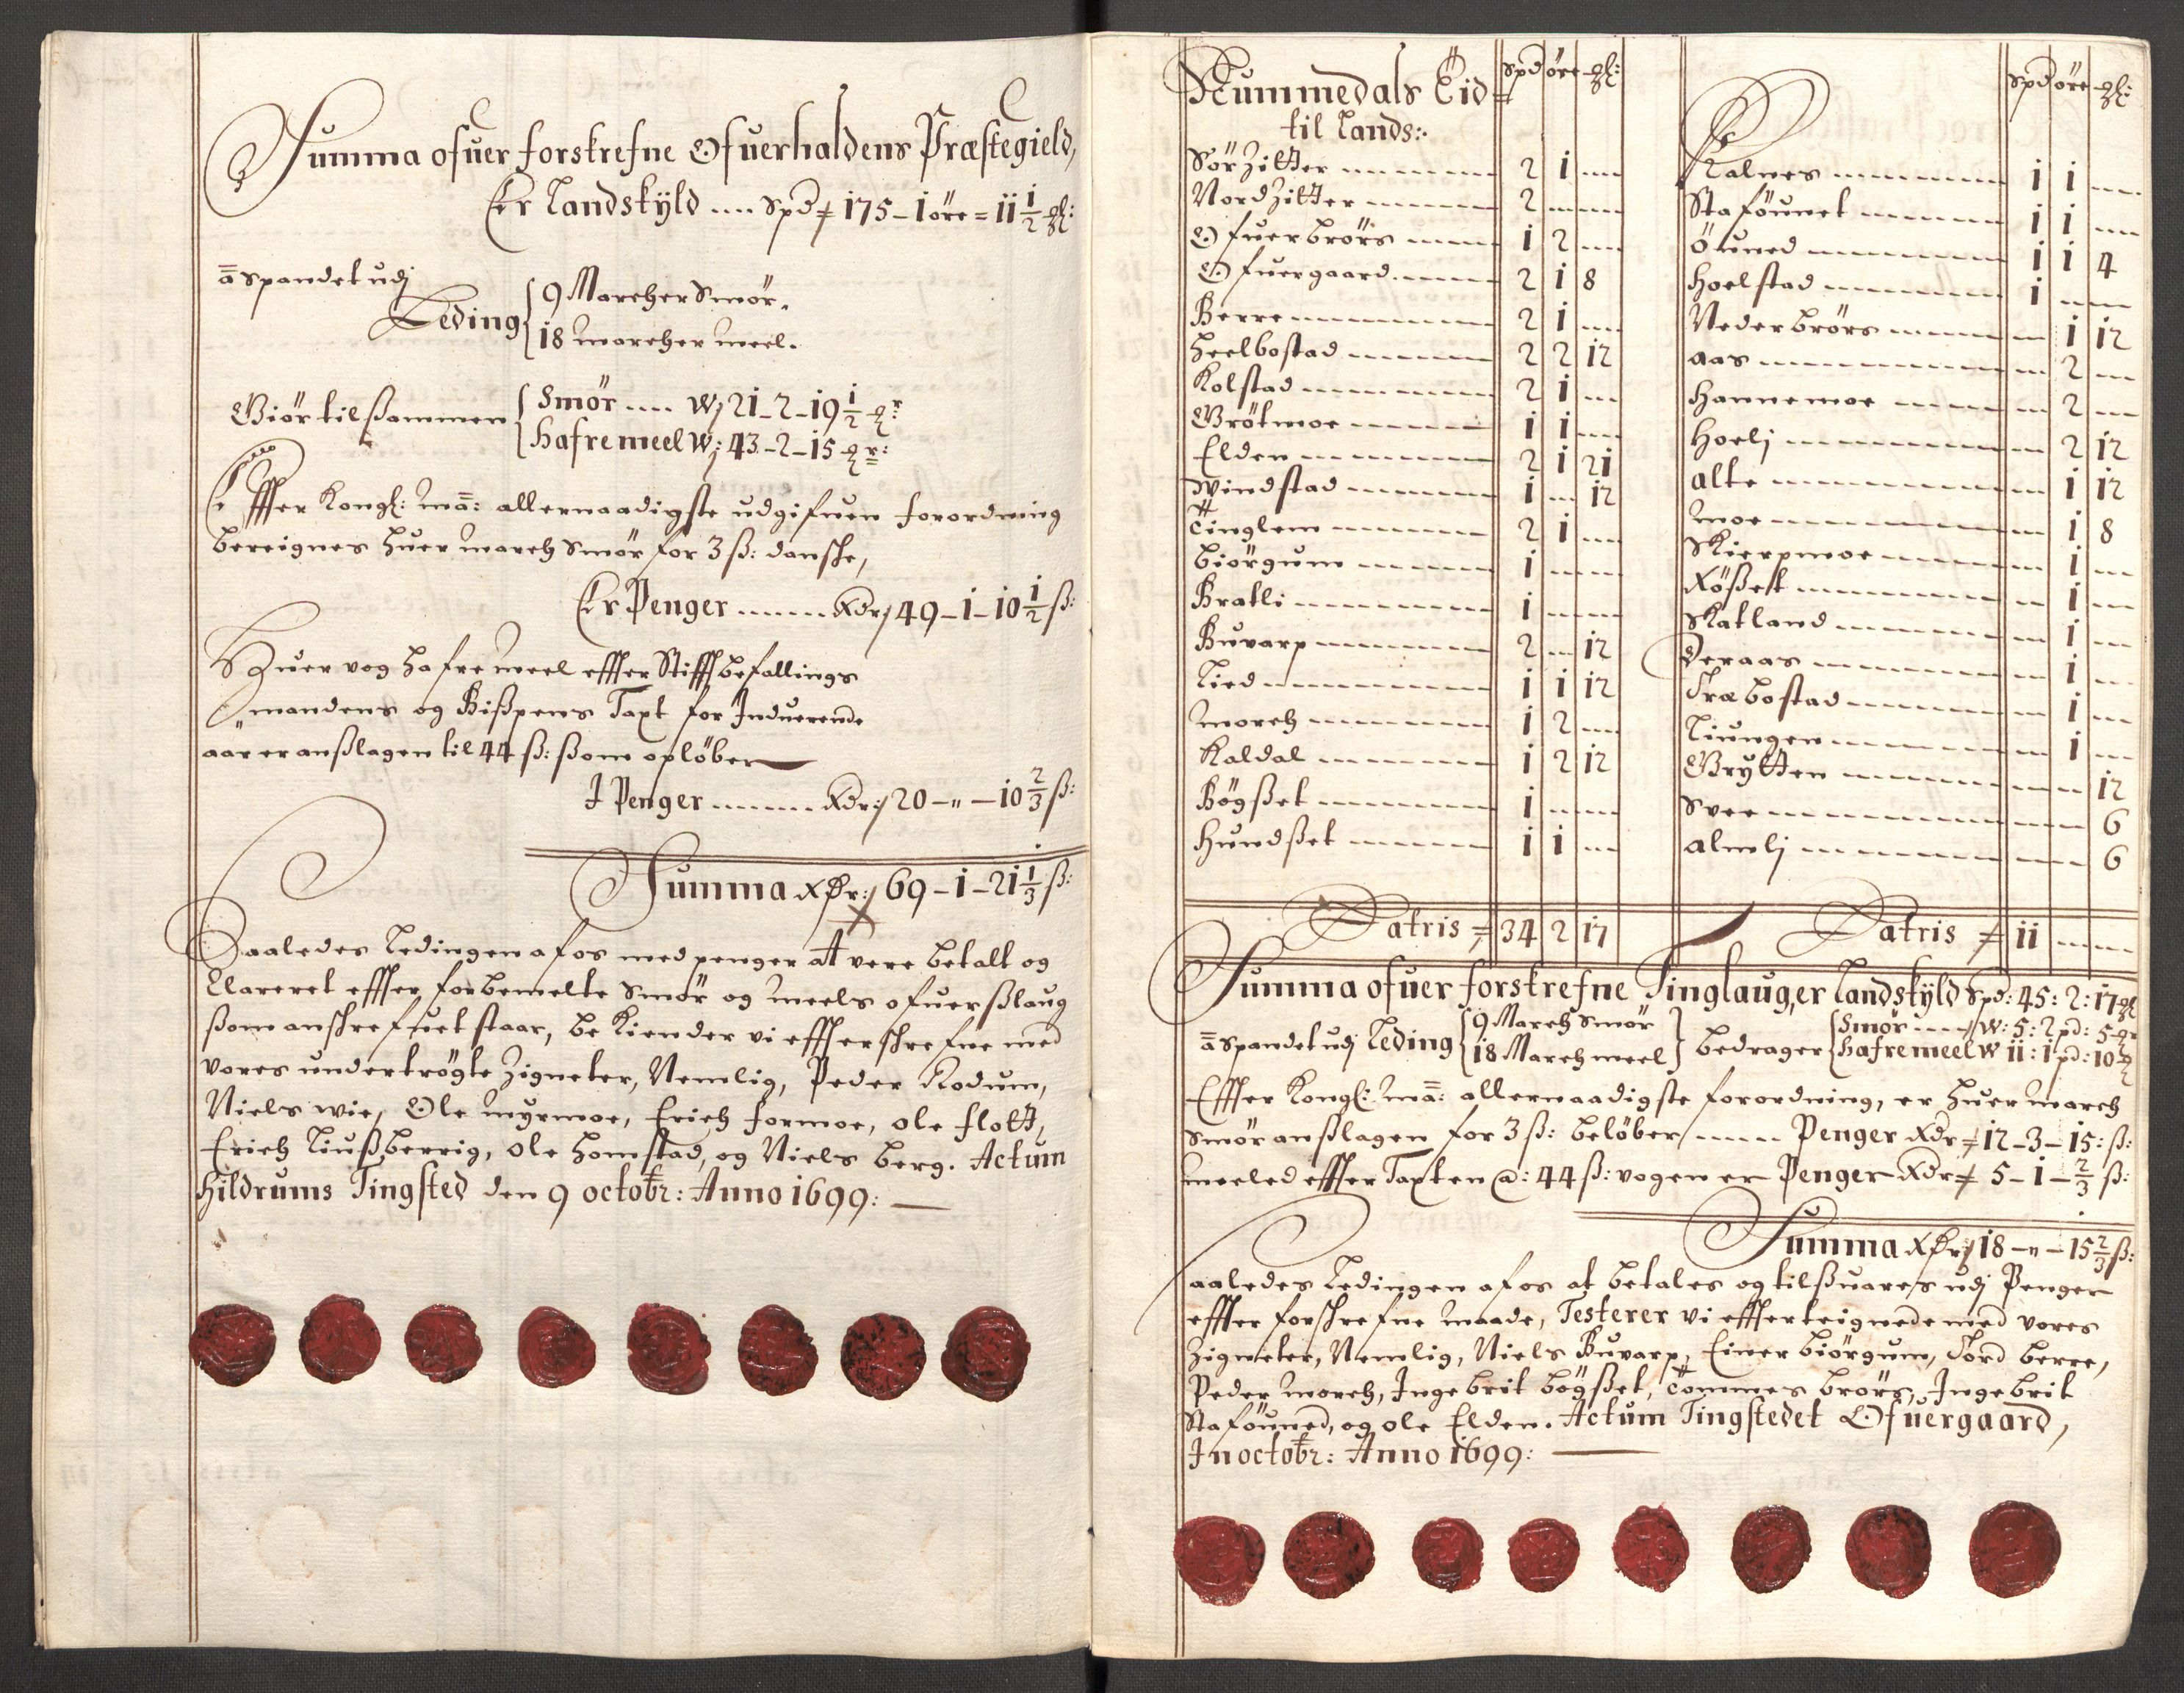 Summa ofuer forskrefne Ofuerhaldens Præstegield,
Er Landskÿld .... Spd ⹀ 175 – 1 öre = 11 1/2 ꝳl:
ā Spandet udj
Leding { 9 Marcher Smör.
18 marcher meel.
Giör tilsammen { Smör .... W; 21 – 2 – 19 1/2 ꝳr
Hafremeel W; 43 – 2 – 15 ꝳr:
Effter Kongl: ma: allernaadigste udgifuen forordning
bereignes huer march Smör for 3 ß: danske,
Er Penger ........ Rdr; 49 – 1 – 10 1/2 ß:
Huer vog hafremeel effter Stifftbefallings
mandens og Bißpens Taxt for Induerende
aar er anslagen til 44 ß: ßom opløber
I Penger ........ Rdr; 20 – „ – 10 2/3 ß:
Summa Rdr:; 69 – 1 – 21 1/3 ß:
Saaledes Ledingen af os med penger at vere betalt og
Clareret effter forbemelte Smör og meels ofuerßlaug
ßom anskrefuet staar, bekiender vi effterskrefne med
vores undertrögte Zigneter, Nemlig, Peder Rodum,
Niels wie, Ole myrmoe, Erich formoe, ole flott,
Erich Liußberrig, ole homstad, og Niels berg. Actum
Hildrums Tingsted den 9 octobr: Anno 1699:
Nummedals Eid-
til Lands:
Spd öre ꝳl:
Sör Zitter ........ 2 1 ....
Nord Zitter ........ 2 ........
Ofuerbrörs ........ 1 2 ....
Ofuergaard ........ 2 1 8
Berre ........ 2 1 ....
Heelbostad ........ 2 2 12
Kolstad ........ 2 1 ....
Grötmoe ........ 1 1 ....
Elden ........ 2 1 21
Windstad ........ 1 .... 12
Tinglem ........ 2 1 ....
Biörgum ........ 1 ........
Bratli ........ 1 ........
Buvarp ........ 2 .... 12
Lied ........ 1 1 12
morch ........ 1 2 ....
Kaldal ........ 1 2 12
Bögßet ........ 1 ........
Hundßet ........ 1 1 ....
Latris ⹀ 34 2 17
Spd öre ꝳl:
Kalnes ........ 1 1 ....
Staföunet ........ 1 1 ....
Öuned ........ 1 1 4
Hoelstad ........ 1 ........
Nederbrörs ........ 1 12
aas ........ 2 ....
Hannemoe ........ 2 ....
Hoelj ........ 2 12
alte ........ 1 12
moe ........ 1 8
Skierpmoe ........ 1 ....
Rößet ........ 1 ....
Skatland ........ 1 ....
Deraas ........ 1 ....
Træbostad ........ 1 ....
Liungen ........ 1 ....
Grytten ........ 12
Svee ........ 6
almlj ........ 6
Latris ⹀ 11 ........
Summa ofuer forskrefne Tinglauger Landskÿld Spd: 45: 2: 17 ꝳl
ā Spandet udj Leding { 9 March Smör
18 March meel } bedrager { Smör .... W: 5: 2 pd: 5 ꝳr
Hafremeel W 11: 1 pd: 10 ꝳ
Effter Kongl: ma: allernaadigste forordning, er huer march
Smör anßlagen for 3 ß: belöber ........ Penger Rdr ⹀ 12 – 3 – 15: ß:
meeled effter Taxten @: 44 ß: vogen er Penger Rdr ⹀ 5 – 1 – 2/3 ß:
Summa Rdr; 18 – „ – 15 2/3 ß:
Saaledes Ledingen af os at betales og tilßuares udj Penger
effter forskrefne maade, Testerer vi effterteignede med vores
Zigneter, Nemlig, Niels Buvarp, Einer biörgum, Tord berre,
Peder morch, Ingebrit bögßet, Tommes brörs, Ingebrit
Staföuned, og ole Elden. Actum Tingstedet Ofuergaard,
In octobr: Anno 1699: